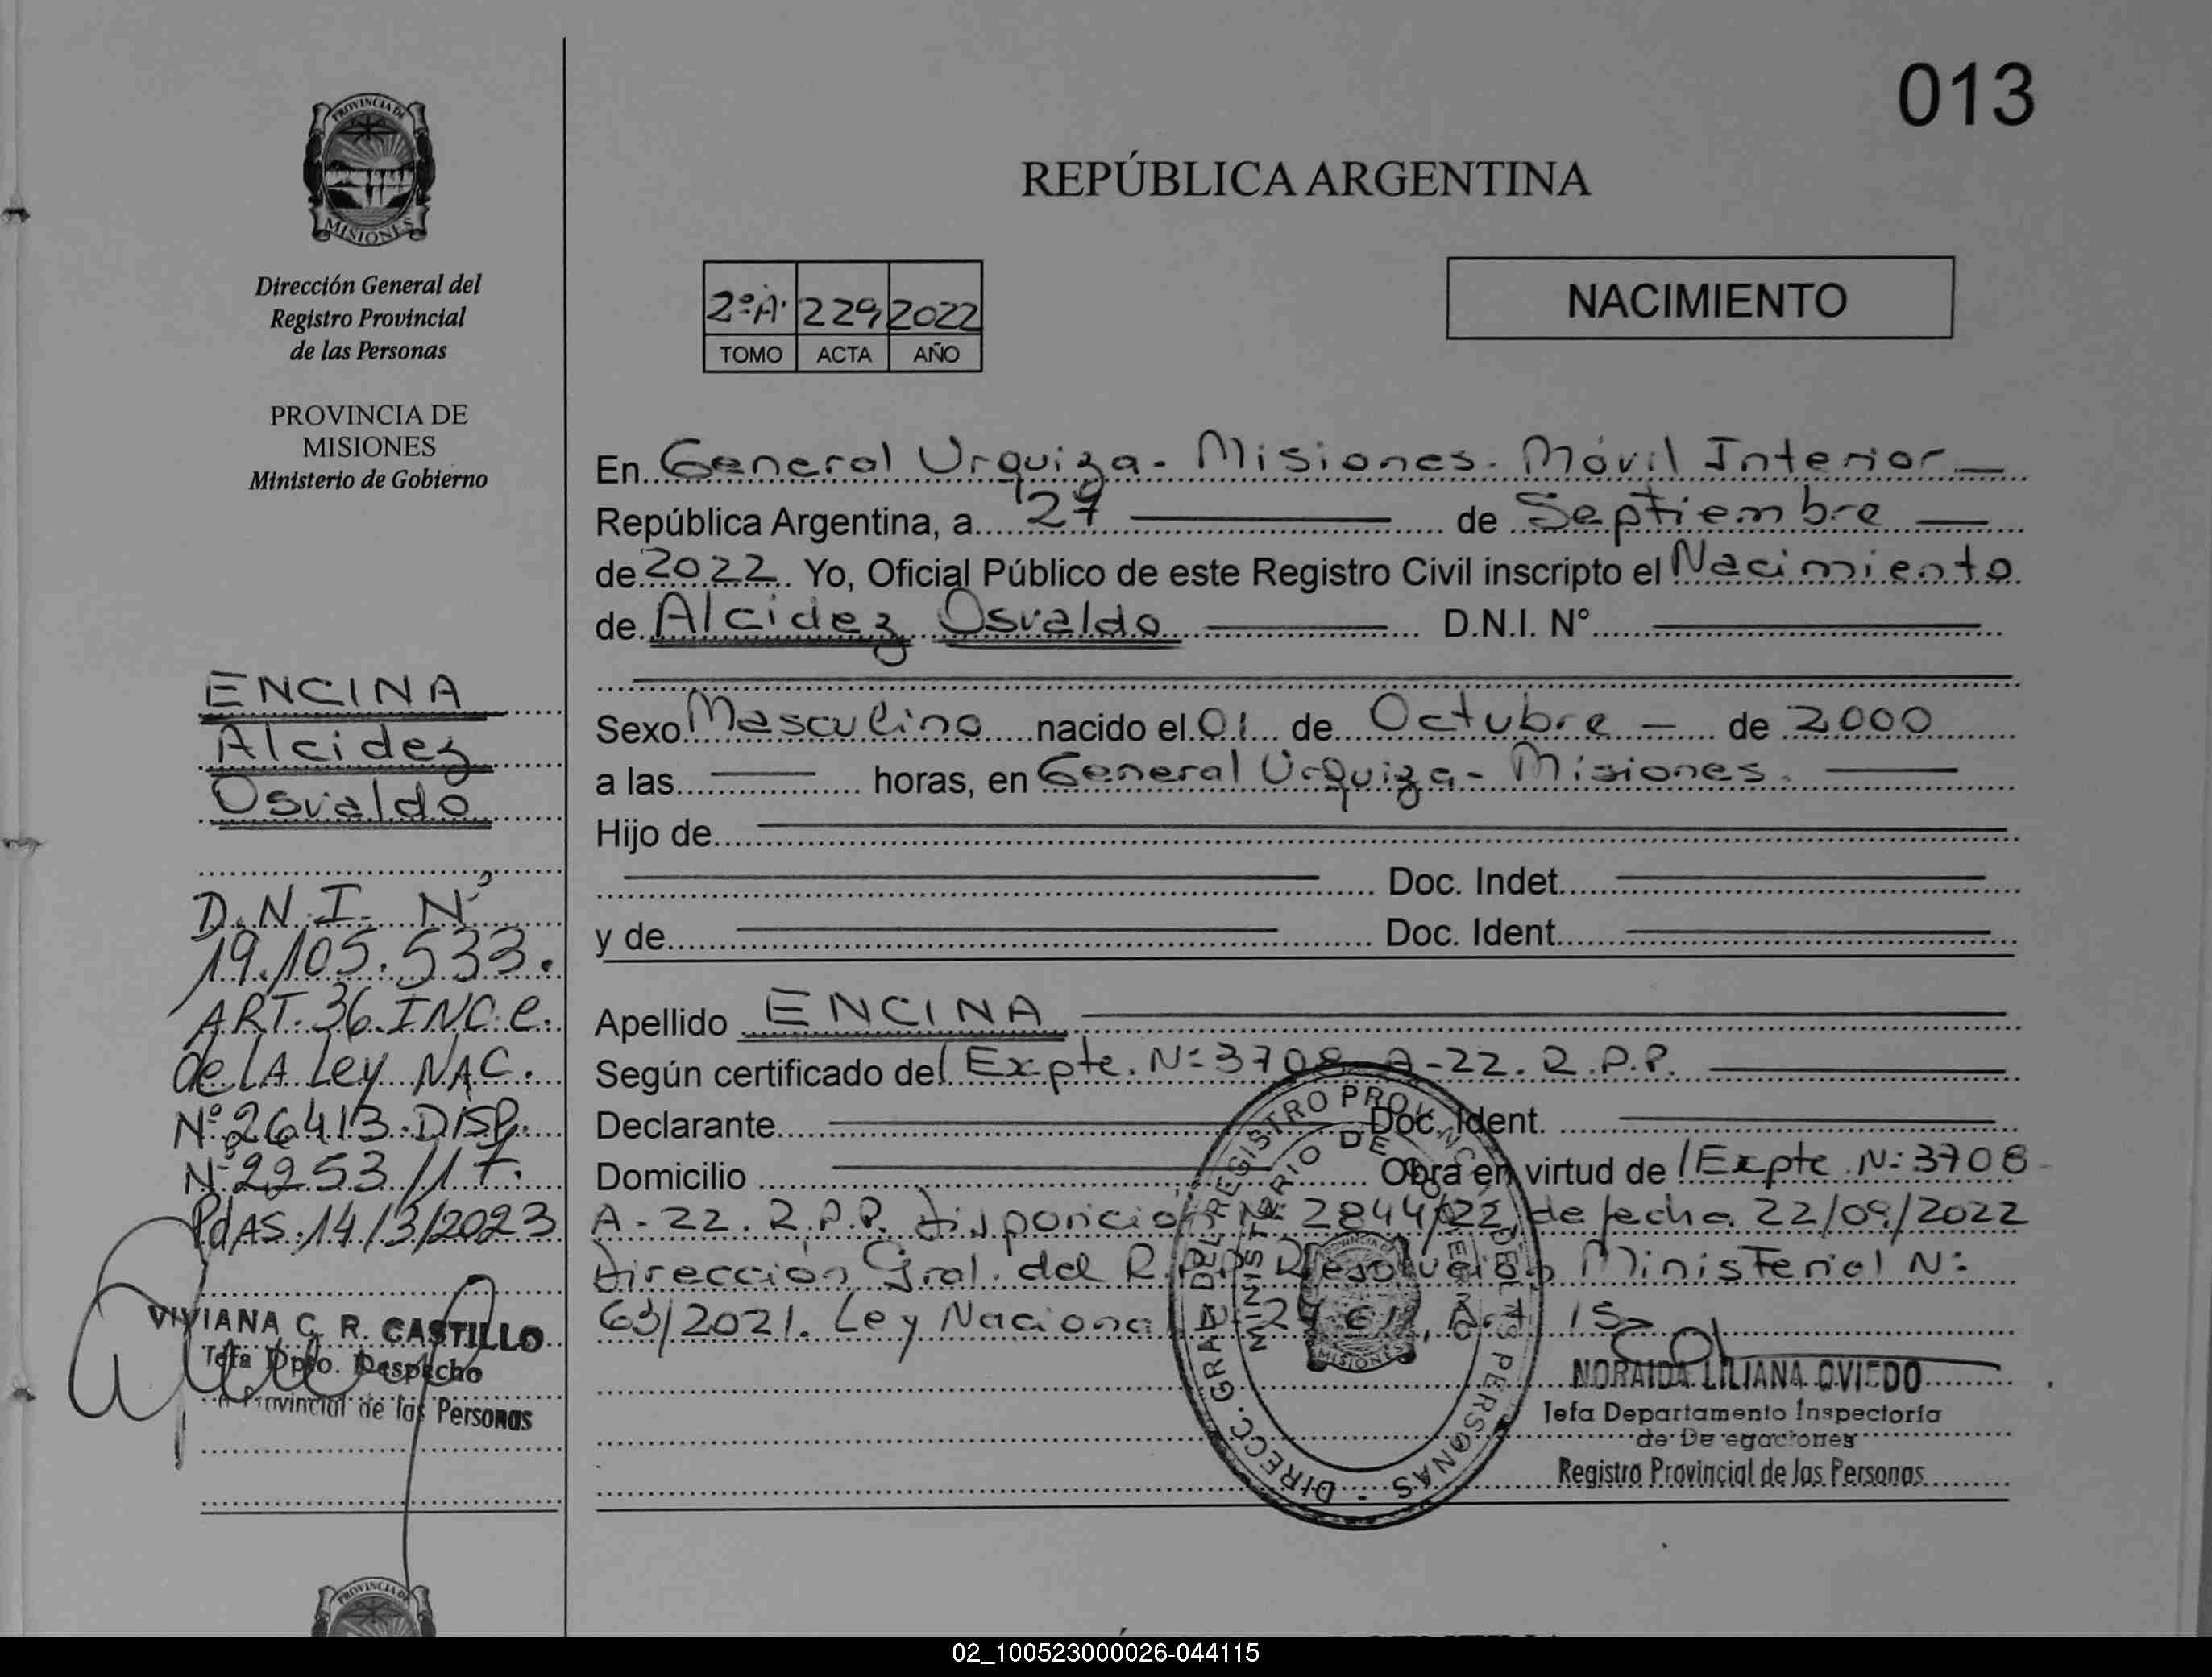 013
PROVINCIA DE
MISIONES
Dirección General del
Registro Provincial
de las Personas
PROVINCIA DE
MISIONES
Ministerio de Gobierno
ENCINA
Alcidez
Osvaldo
D.N.I. Nº
19.105.533.
ART. 36 INC. e.
de LA Ley NAC.
Nº 26413. DISP.
Nº 2253/17.
PdAS. 14/3/2023
VIVIANA C. R. CASTILLO
Jefa Dpto. Despacho
Provincial de las Personas
REPÚBLICA ARGENTINA
2º A. 229 2022
TOMO ACTA AÑO
NACIMIENTO
En General Urquiza - Misiones. Móvil Interior
República Argentina, a 27 de Septiembre
de 2022. Yo, Oficial Público de este Registro Civil inscripto el Nacimiento
de Alcidez Osvaldo D.N.I. N°
Sexo Masculino nacido el 01 de Octubre de 2000
a las horas, en General Urquiza - Misiones.
Hijo de
Doc. Indet.
y de Doc. Ident.
Apellido ENCINA
Según certificado del Expte. Nº 3708-A-22. R.P.P.
Declarante Doc. Ident.
Domicilio Obra en virtud de Expte. Nº 3708-
A-22. R.P.P. Disposición Nº 2844/22 de fecha 22/09/2022
Dirección Gral. del R.P.P. Resolución Ministerial Nº
63/2021. Ley Nacional Art. 15
DIRECC. GRAL. DEL REGISTRO PROVINCIAL DE LAS PERSONAS
MINISTERIO DE GOBIERNO
MISIONES
NORAIDA LILIANA OVIEDO
Jefa Departamento Inspectoría
de Delegaciones
Registro Provincial de las Personas
PROVINCIA DE
02_100523000026-044115